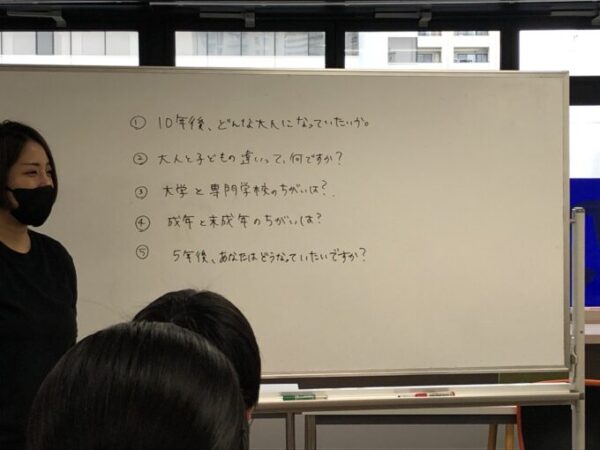 ① 10年後、どんな大人になっていたいか。
② 大人と子どもの違いって、何ですか？
③ 大学と専門学校のちがいは？
④ 成年と未成年のちがいは？
⑤ 5年後、あなたはどうなっていたいですか？